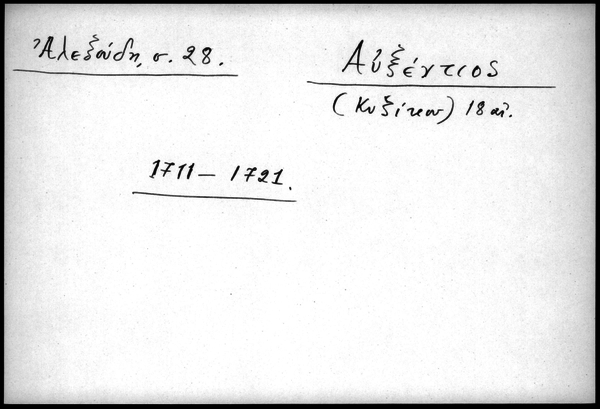 Ἀλεξούδη, σ. 28.
Αὐξέντιος
(Κυζίκου) 18 αἰ.
1711 – 1721.